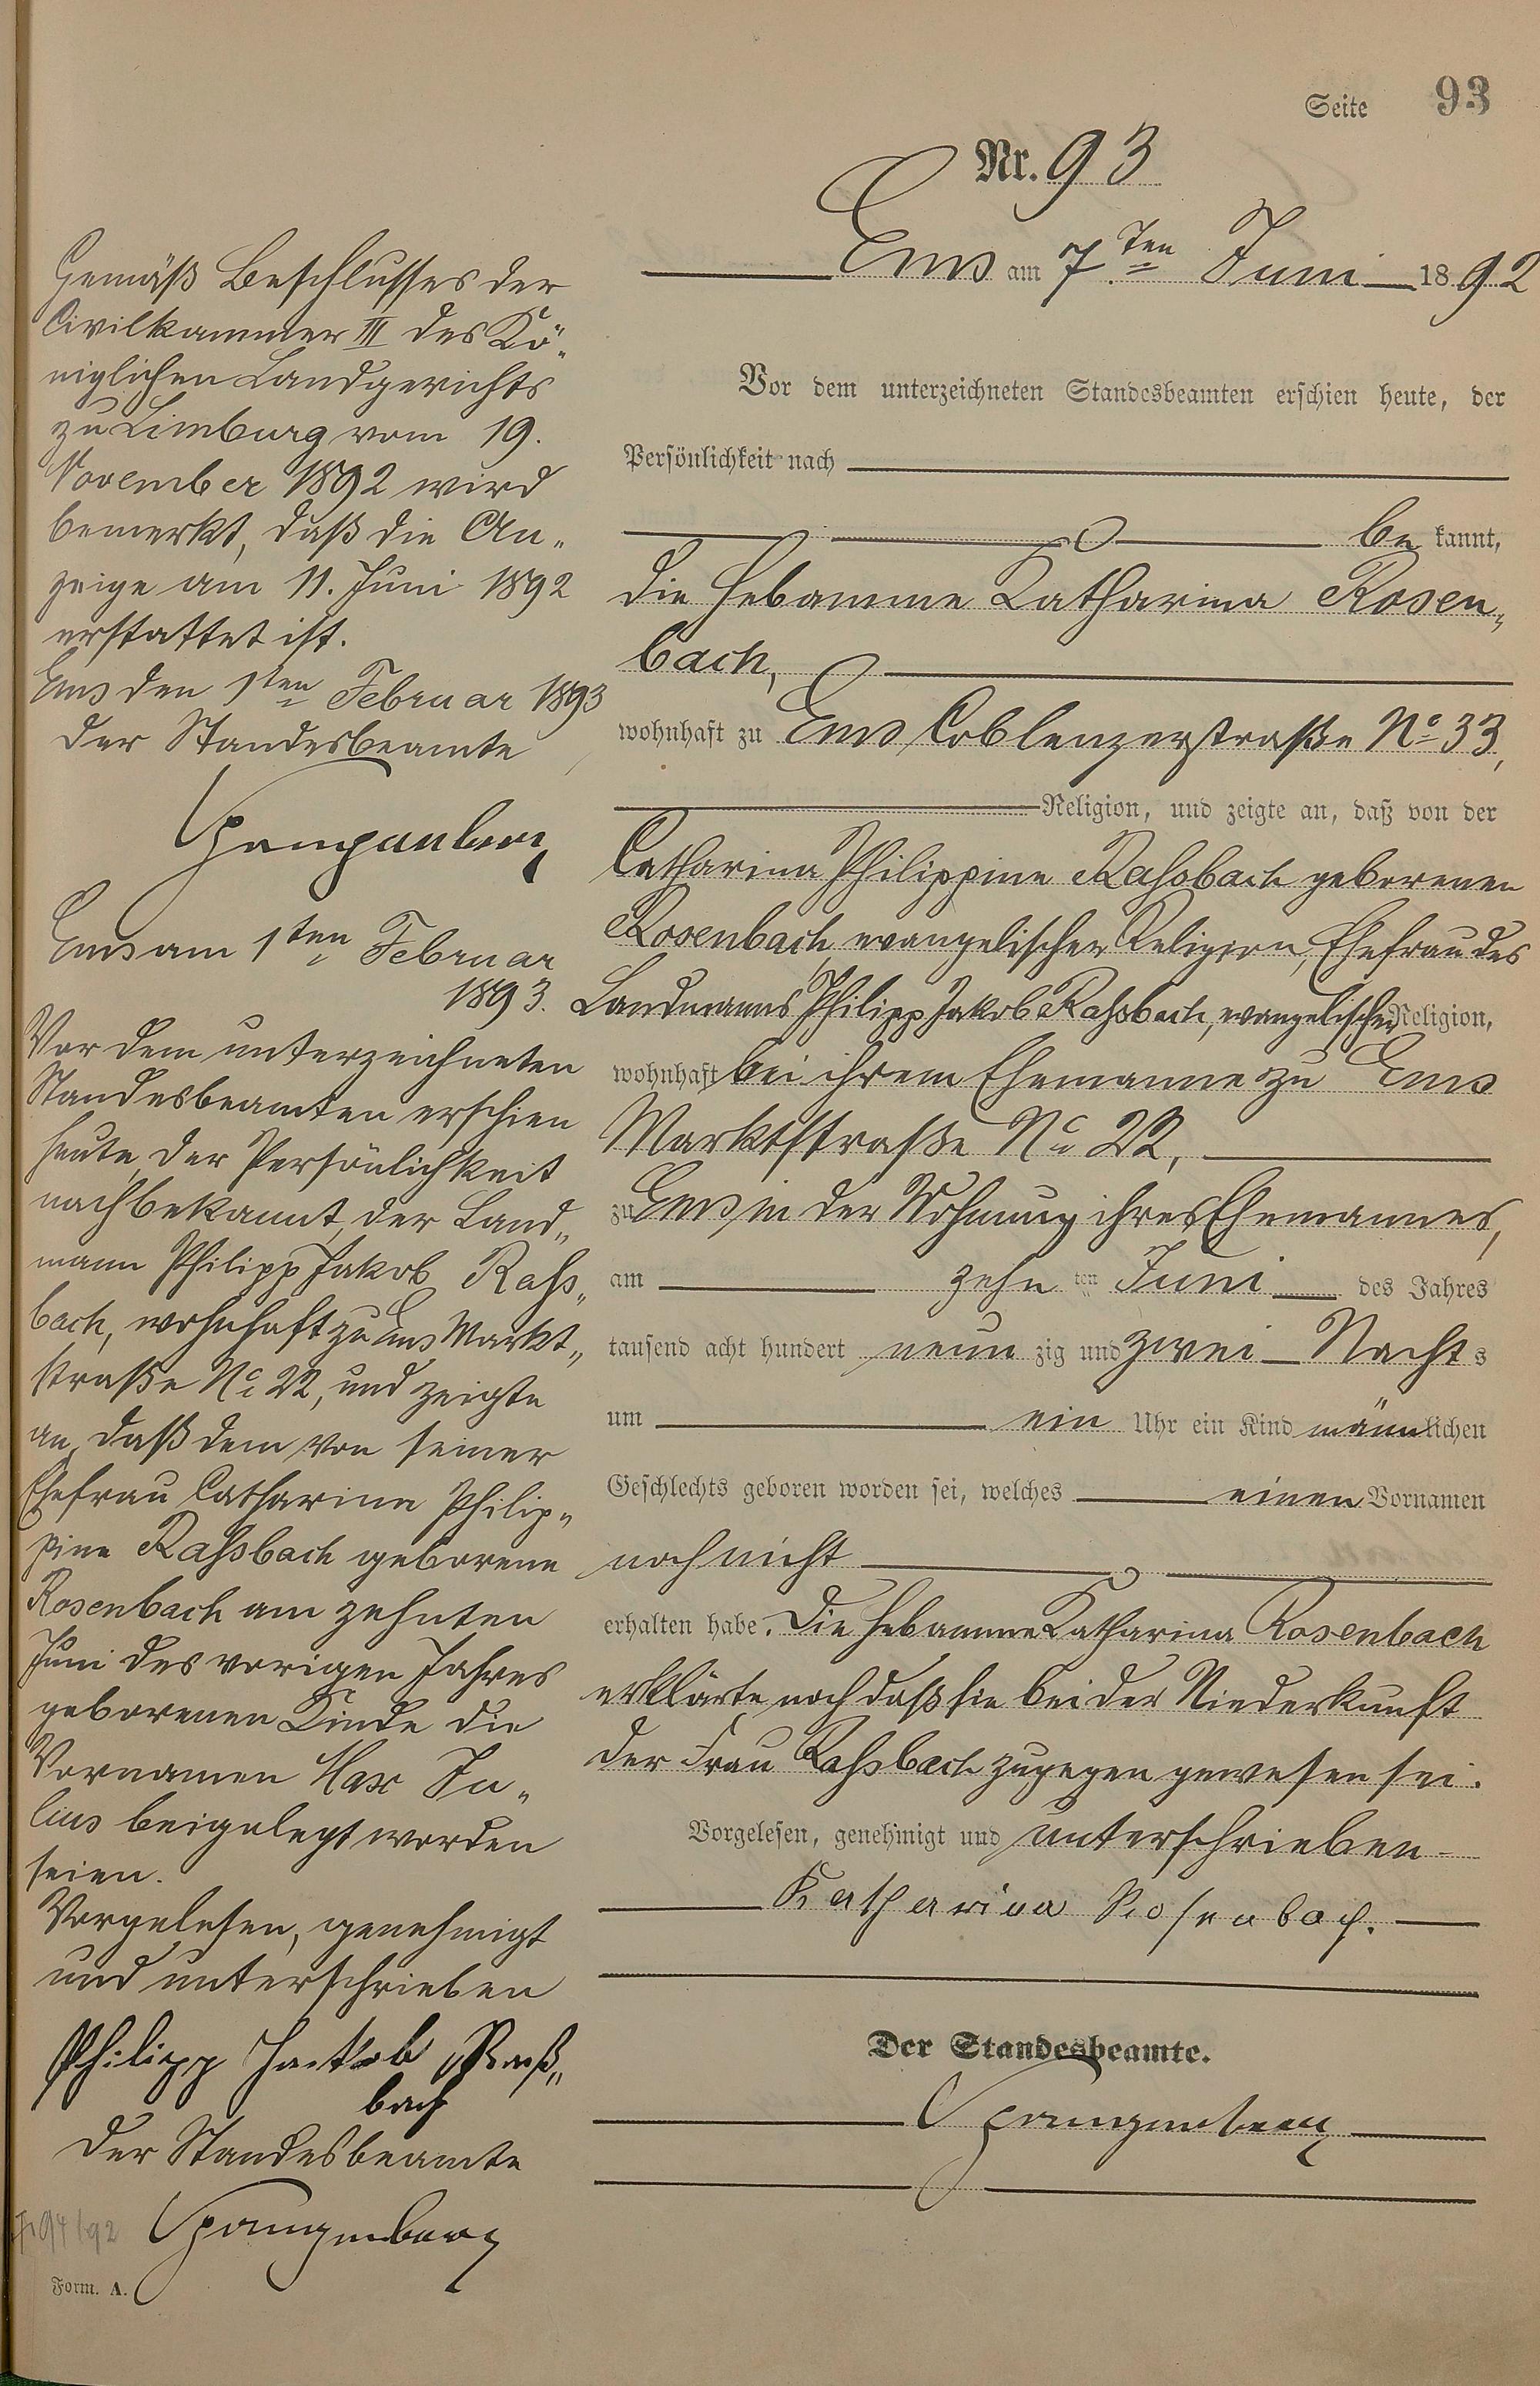 Seite 93
Nr. 93
Ems am 7ten Juni 1892
Vor dem unterzeichneten Standesbeamten erschien heute, der
Persönlichkeit nach
be kannt,
die Hebamme Katharina Rosen„
bach,
wohnhaft zu Ems Coblenzerstraße No 33,
Religion, und zeigte an, daß von der
Catharina Philippine Rahsbach geborenen
Rosenbach, evangelischer Religion, Ehefrau des
Landmanns Philipp Jakob Rahsbach, evangelischer Religion,
wohnhaft bei ihrem Ehemanne zu Ems
Marktstraße No 22,
zu Ems in der Wohnung ihres Ehemannes,
am zehn ten Juni des Jahres
tausend acht hundert neun zig und zwei Nachts
um ein Uhr ein Kind männlichen
Geschlechts geboren worden sei, welches einen Vornamen
noch nicht
erhalten habe. Die Hebamme Katharina Rosenbach
erklärte noch daß sie bei der Niederkunft
der Frau Rahsbach zugegen gewesen sei.
Vorgelesen, genehmigt und unterschrieben
Katharina Rosenbach.
Der Standesbeamte.
Spangenberg
Gemäß Beschlusses der
Civilkammer III des Kö„
niglichen Landgerichts
zu Limburg vom 19.
November 1892 wird
bemerkt, daß die An„
zeige am 11. Juni 1892
erstattet ist.
Ems den 1ten Februar 1893
Der Standesbeamte
Spangenberg
Ems am 1ten Februar
1893.
Vor dem unterzeichneten
Standesbeamten erschien
heute, der Persönlichkeit
nach bekannt, der Land„
mann Philipp Jakob Rahs„
bach, wohnhaft zu Ems Markt„
straße No 22, und zeigte
an, daß dem von seiner
Ehefrau Catharina Philip„
pine Rahsbach geborene
Rosenbach am zehnten
Juni des vorigen Jahres
geborenen Kinde die
Vornamen Max Ju„
lius beigelegt worden
seien.
Vorgelesen, genehmigt
und unterschrieben
Philipp Jackob Raß„
bach
Der Standesbeamte
Spangenberg
94/92
Form. A.